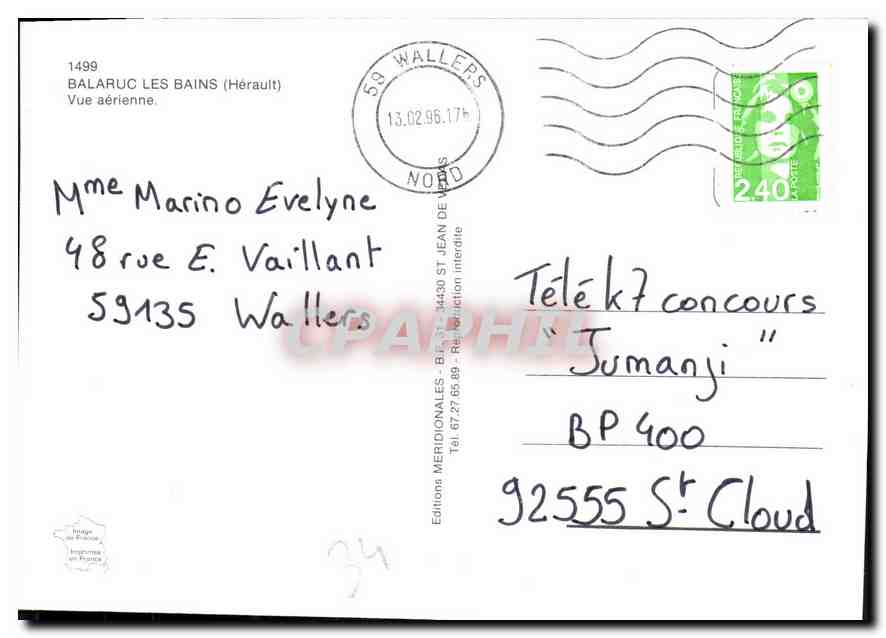 1499
BALARUC LES BAINS (Hérault)
Vue aérienne.
59 WALLERS
13.02.96.17h
NORD
RÉPUBLIQUE FRANÇAISE
2,40
LA POSTE
Mme Marino Evelyne
48 rue E. Vaillant
59135 Wallers
CPAPHIL
Editions MERIDIONALES - B.P. 31 - 34430 ST JEAN DE VEDAS
Tél. 67.27.65.89 - Reproduction interdite
Télé k7 concours
"Jumanji"
BP 400
92555 St. Cloud
Image
de France
Imprimée
en France
34